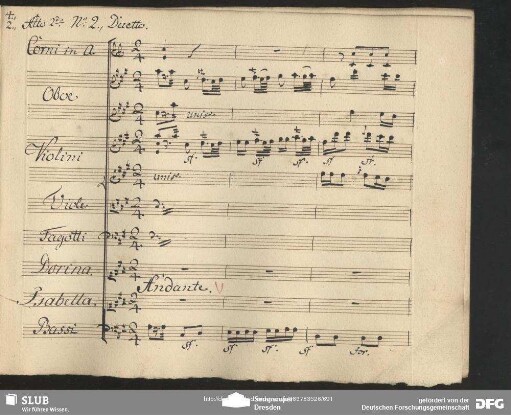 Atto 2do No. 2., Duetto.
Corni in A.
Oboe.
unis.
Violini
sf. sf sf. sf sf.
unis.
Viole
Fagotti
Dorina.
Andante.
Isabella.
Bassi
sf. sf sf. sf for.
SLUB
Wir führen Wissen.
Dresden
gefördert von der
Deutschen Forschungsgemeinschaft
DFG